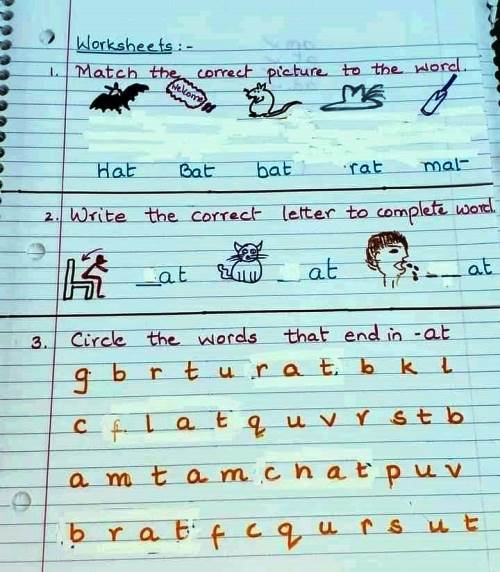 Worksheets :-
1. Match the correct picture to the word.
Welcome
Hat Bat bat rat mat
2. Write the correct letter to complete word
_at _ at __ at
3. Circle the words that end in -at
g b r t u r a t b k l
c f l a t q u v r s t b
a m t a m c h a t p u v
b r a t f c q u r s u t